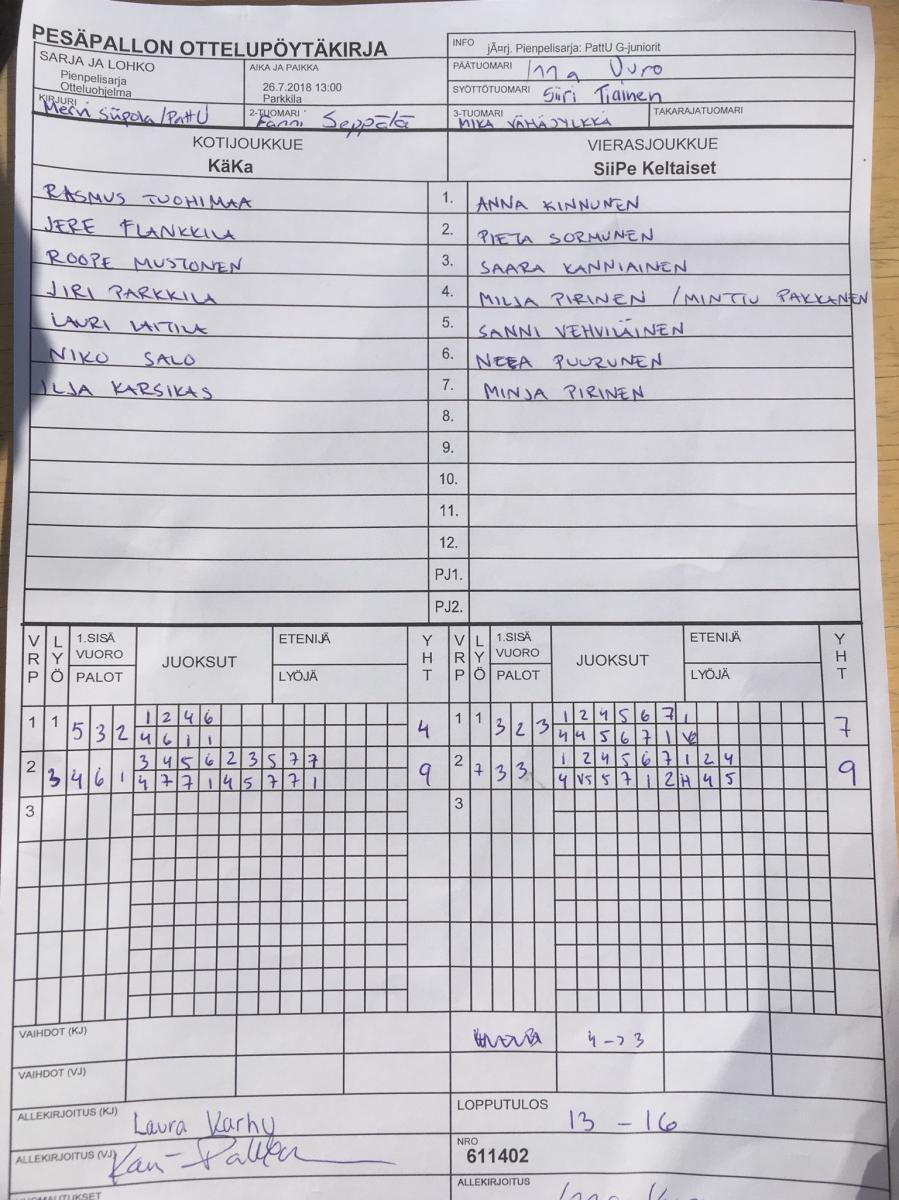 PESÄPALLON OTTELUPÖYTÄKIRJA
INFO jÃ¤rj. Pienpelisarja: PattU G-juniorit
SARJA JA LOHKO
Pienpelisarja
Otteluohjelma
AIKA JA PAIKKA
26.7.2018 13:00
Parkkila
PÄÄTUOMARI Inna Vuro
SYÖTTÖTUOMARI Siiri Tiainen
KIRJURI Mervi Siipola/PattU
2-TUOMARI Fanni Seppälä
3-TUOMARI MIKA VÄHÄJYLKKÄ
TAKARAJATUOMARI
KOTIJOUKKUE
KäKa
VIERASJOUKKUE
SiiPe Keltaiset
RASMUS TUOHIMAA 1. ANNA KINNUNEN
JERE FLANKKILA 2. PIETA SORMUNEN
ROOPE MUSTONEN 3. SAARA KANNIAINEN
JIRI PARKKILA 4. MILJA PIRINEN /MINTTU PAKKANEN
LAURI LAITILA 5. SANNI VEHVILÄINEN
NIKO SALO 6. NEEA PUURUNEN
ILJA KARSIKAS 7. MINJA PIRINEN
8.
9.
10.
11.
12.
PJ1.
PJ2.
VRP LYÖ 1.SISÄ VUORO PALOT JUOKSUT ETENIJÄ LYÖJÄ YHT VRP LYÖ 1.SISÄ VUORO PALOT JUOKSUT ETENIJÄ LYÖJÄ YHT
1 1 5 3 2 1 2 4 6 4 1 1 3 2 3 1 2 4 5 6 7 1 7
4 6 1 1 4 4 5 6 7 1
2 3 4 6 1 3 4 5 6 2 3 5 7 7 9 2 7 3 3 1 2 4 5 6 7 1 2 4 9
4 7 7 1 4 5 7 7 1 4 V5 5 7 1 2 H 4 5
3 3
VAIHDOT (KJ) 4 -> 3
VAIHDOT (VJ)
ALLEKIRJOITUS (KJ) Laura Karhu
LOPPUTULOS
13 - 16
ALLEKIRJOITUS (VJ)
NRO
611402
ALLEKIRJOITUS